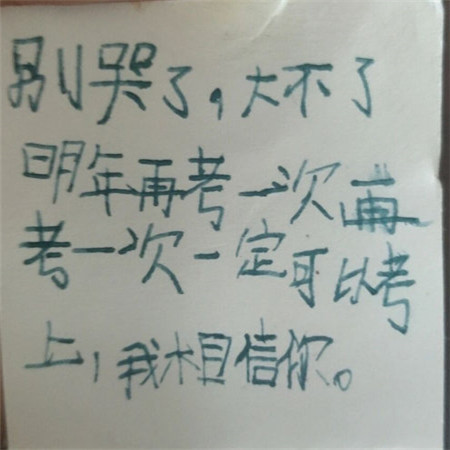 别哭了,大不了
明年再考一次再
考一次一定可以考
上,我相信你。